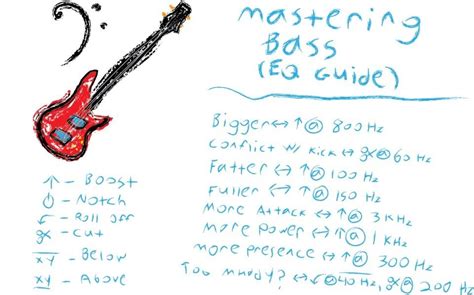 mastering
Bass
(EQ Guide)
Bigger ↔ ↑ @ 800 Hz
Conflict w/ Kick ↔ ✂ @ 60 Hz
Fatter ↔ ↑ @ 100 Hz
Fuller ↔ ↑ @ 150 Hz
More Attack ↔ ↑ @ 3 KHz
more power ↔ ↑ @ 1 KHz
more presence ↔ ↑ @ 300 Hz
Too muddy? ↔ ↲ @ 40 Hz, ✂ @ 200 Hz
↑ - Boost
- Notch
↲ - Roll off
✂ - Cut
xy - Below
xy - Above